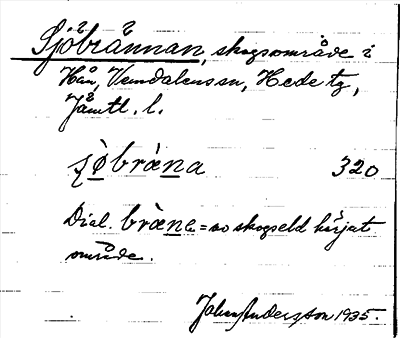 Sjöbrännan, skogsområde i
Hån, Vemdalens sn, Hede tg,
Jämtl. l.
sjöbràna 320
Dial. bràne = av skogseld härjat
område.
John Andersson 1935.